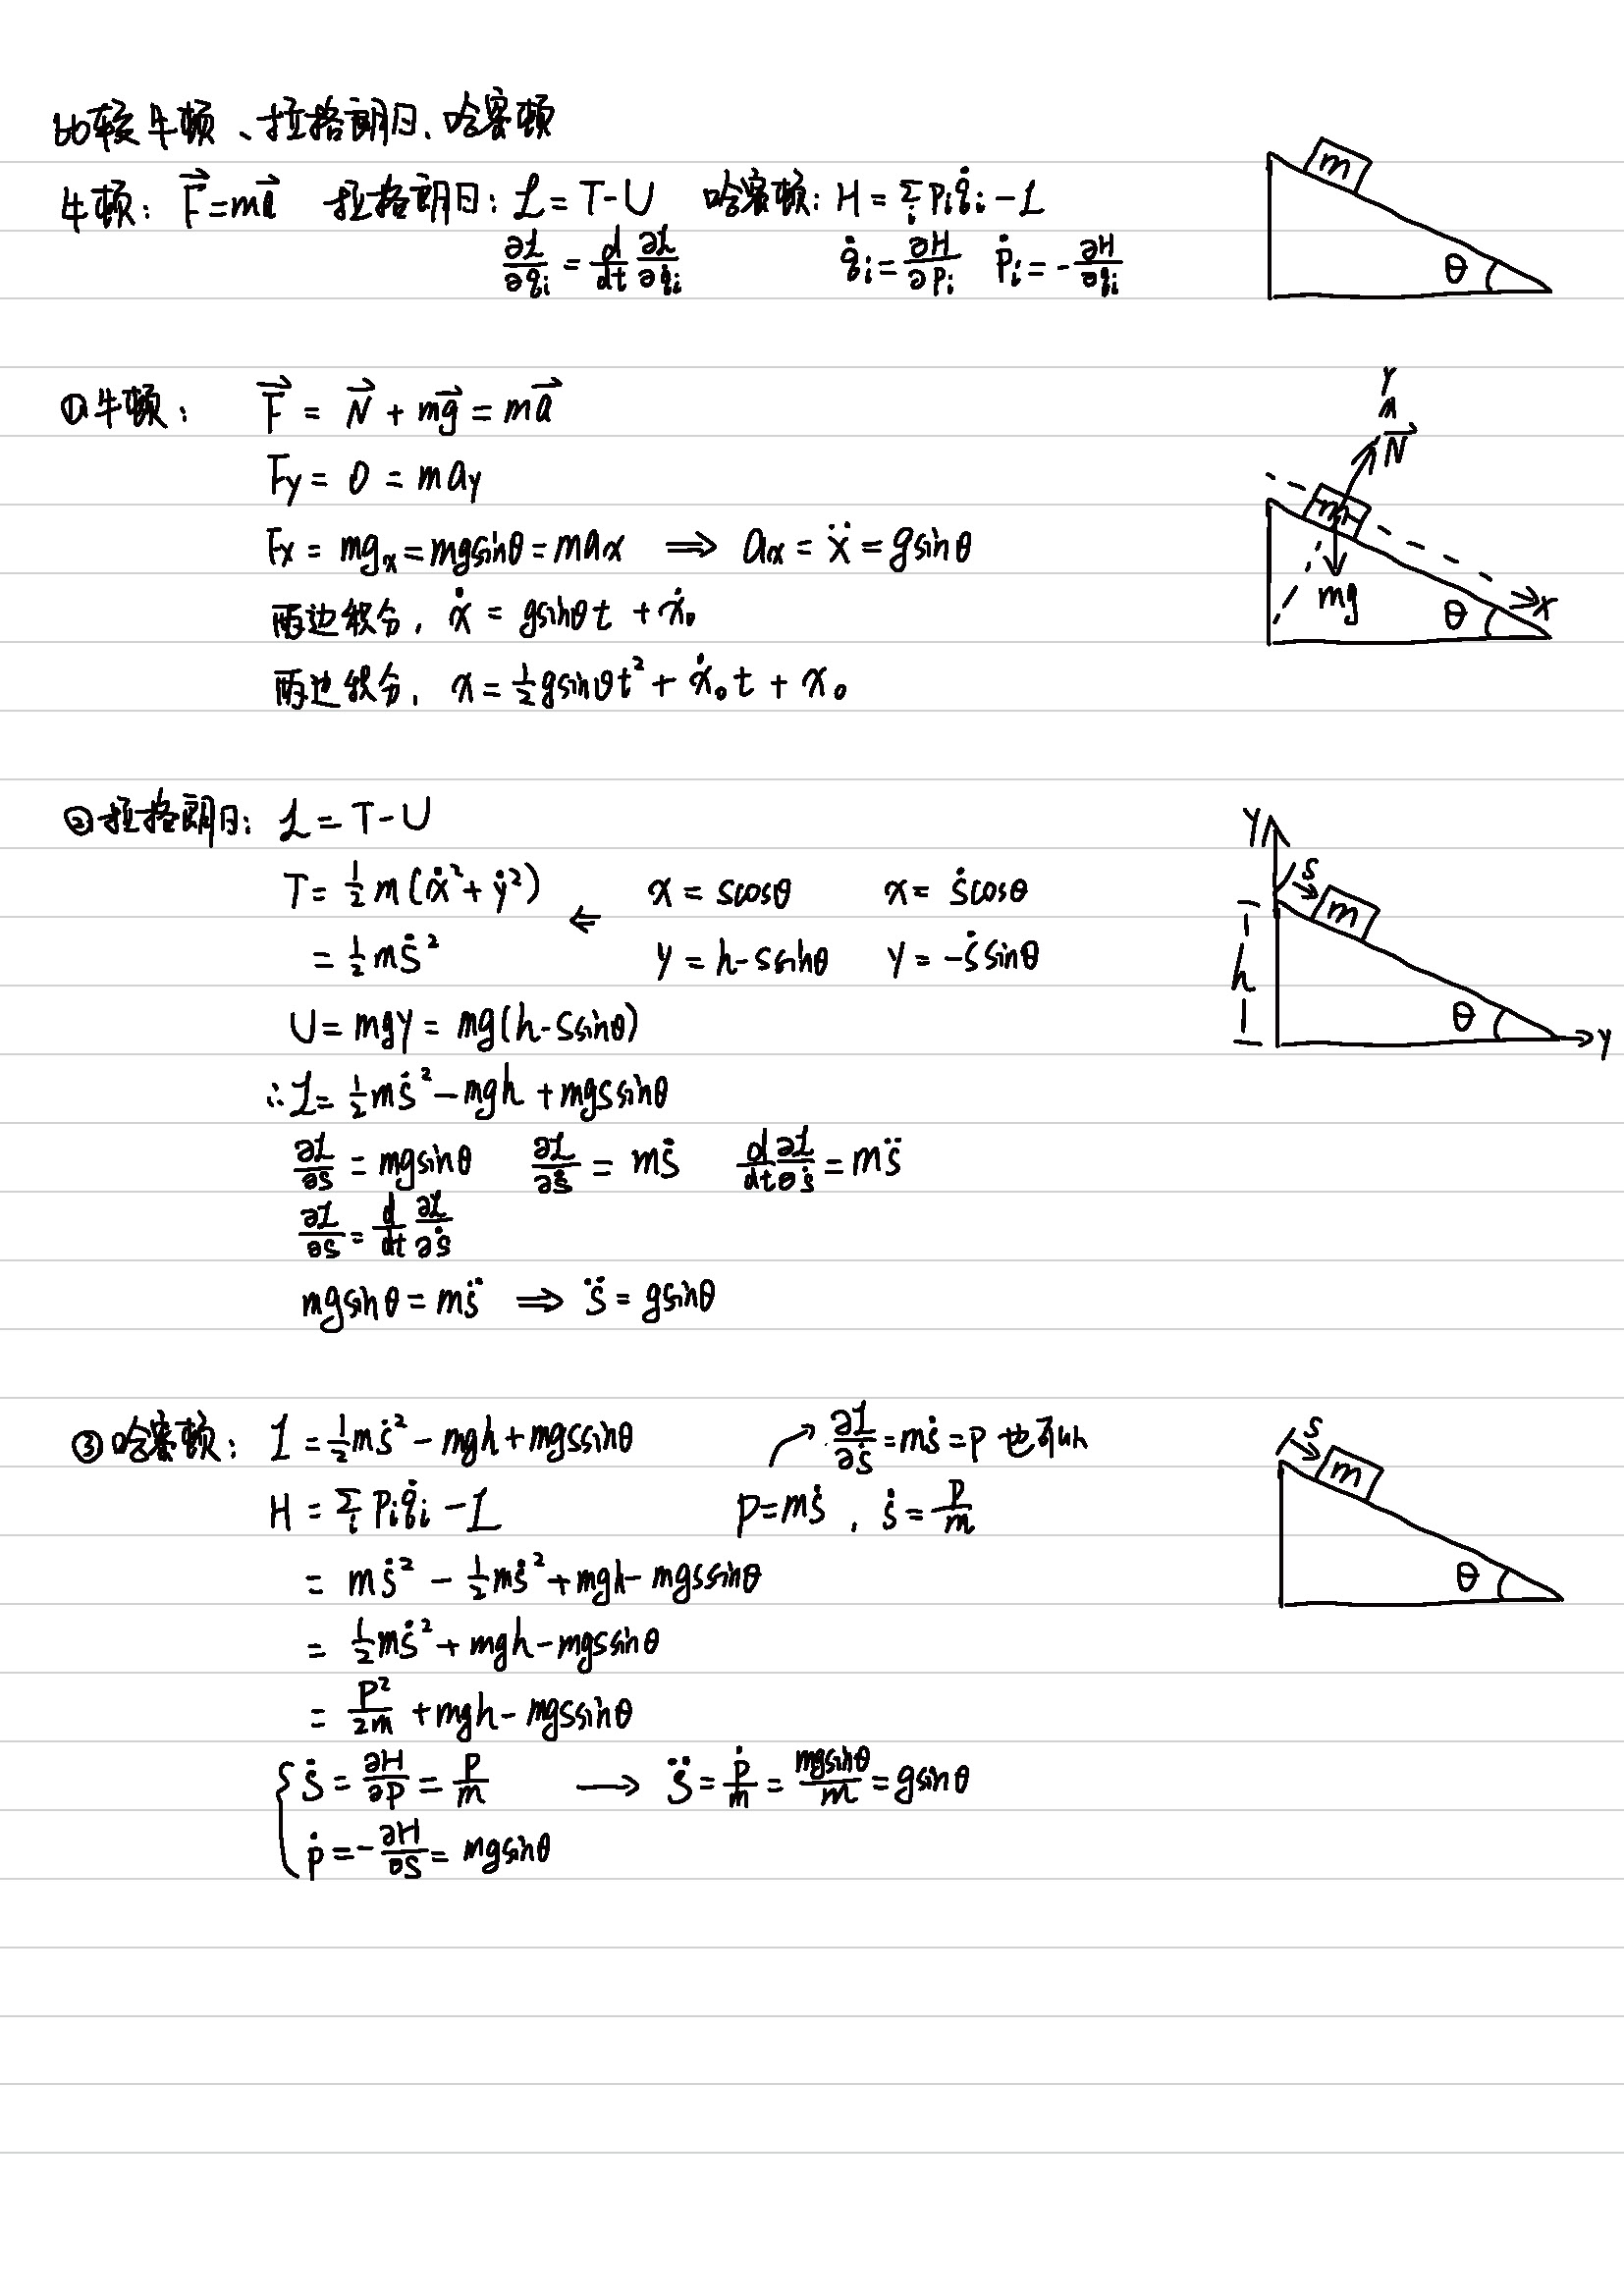 比较牛顿、拉格朗日、哈密顿
牛顿: F⃗=ma⃗ 拉格朗日: ℒ=T-U 哈密顿: H=∑ᵢpᵢq̇ᵢ-ℒ
∂ℒ/∂qᵢ = d/dt ∂ℒ/∂q̇ᵢ q̇ᵢ=∂H/∂pᵢ ṗᵢ=-∂H/∂qᵢ
m
θ
①牛顿: F⃗ = N⃗ + mg⃗ = ma⃗
F_y = 0 = ma_y
F_x = mg_x = mgsinθ = ma_x ⟹ a_x = ẍ = gsinθ
两边积分, ẋ = gsinθt + ẋ₀
两边积分, x = ½gsinθt² + ẋ₀t + x₀
Y
N⃗
m
mg
θ
x
②拉格朗日: ℒ=T-U
T = ½m(ẋ²+ẏ²) x = scosθ x = ṡcosθ
= ½mṡ² ← y = h-ssinθ y = -ṡsinθ
U = mgy = mg(h-ssinθ)
∴ℒ = ½mṡ² - mgh + mgssinθ
∂ℒ/∂s = mgsinθ ∂ℒ/∂ṡ = mṡ d/dt ∂ℒ/∂ṡ = ms̈
∂ℒ/∂s = d/dt ∂ℒ/∂ṡ
mgsinθ = ms̈ ⟹ s̈ = gsinθ
Y
s
m
h
θ
Y
③哈密顿: ℒ = ½mṡ² - mgh + mgssinθ ∂ℒ/∂ṡ = mṡ = p 也可以
H = ∑ᵢpᵢq̇ᵢ - ℒ p=mṡ, ṡ=p/m
= mṡ² - ½mṡ² + mgh - mgssinθ
= ½mṡ² + mgh - mgssinθ
= p²/2m + mgh - mgssinθ
{ṡ = ∂H/∂p = p/m ⟶ s̈ = ṗ/m = mgsinθ/m = gsinθ
ṗ = -∂H/∂s = mgsinθ
s
m
θ